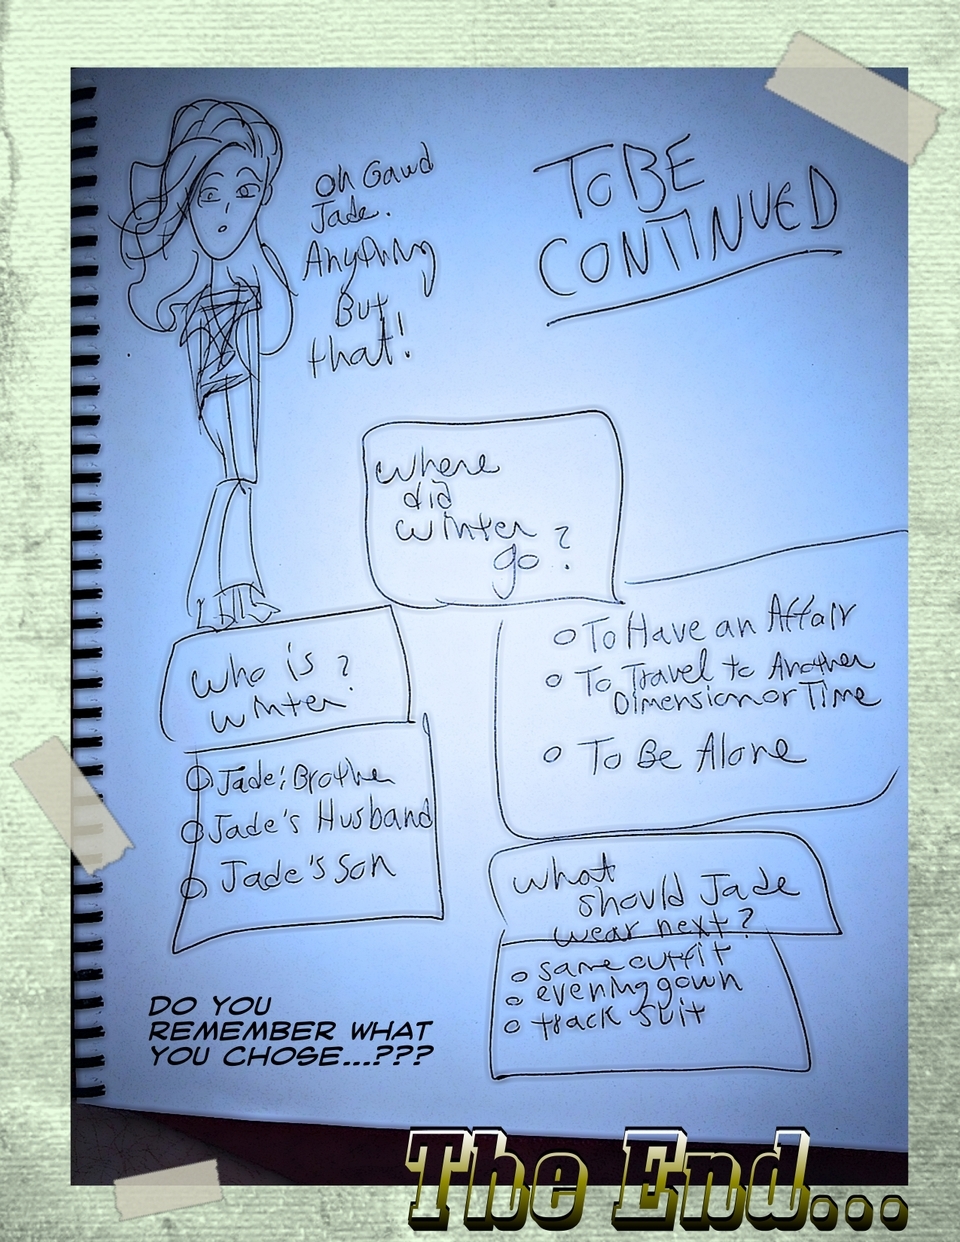 Oh Gawd
Jade.
Anything
But
that!
TO BE
CONTINUED
Where
did
Winter
go?
Who is
Winter?
Jade's Brother
Jade's Husband
Jade's Son
To Have an Affair
To Travel to Another
Dimension or Time
To Be Alone
What
should Jade
wear next?
same outfit
evening gown
track suit
DO YOU
REMEMBER WHAT
YOU CHOSE...???
The End...